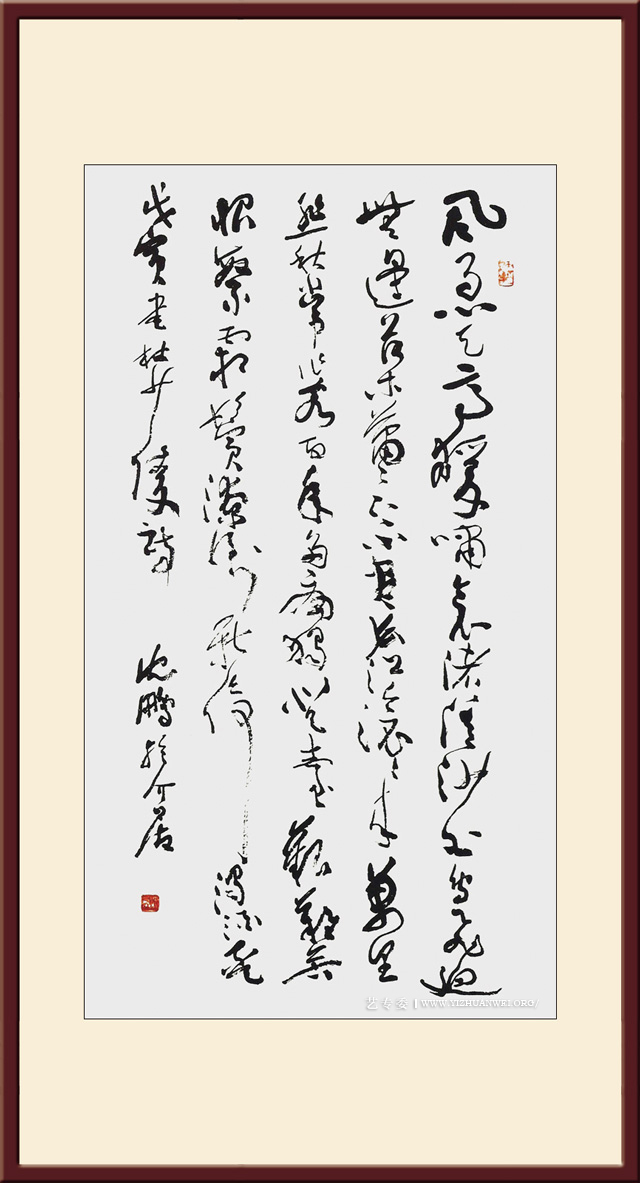 風急天高猨嘯哀渚清沙白鳥飛迴
無邊落木蕭蕭下不盡長江滾滾來萬里
悲秋常作客百年多病獨登臺艱難苦
恨繁霜鬢潦倒新停濁酒杯
戊寅書杜少陵詩 沈鵬於介居
艺专委 | WWW.YIZHUANWEI.ORG/